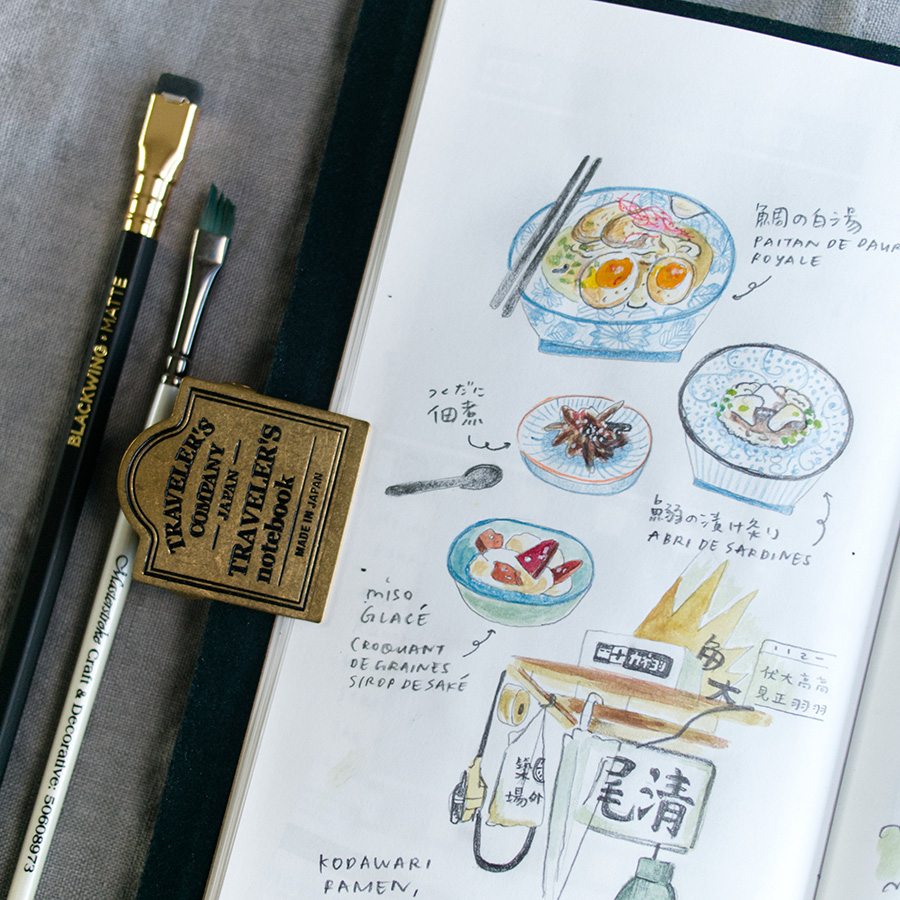 BLACKWING • MATTE
Masterstroke Craft & Decorative: 50608973
TRAVELER'S
COMPANY
JAPAN
TRAVELER'S
notebook
MADE IN JAPAN
鯛の白湯
PAITAN DE DAUR
ROYALE
つくだに
佃煮
鰯の漬け炙り
ABRI DE SARDINES
miso
GLACÉ
CROQUANT
DE GRAINES
SIROP DE SAKÉ
大
伏大高高
見正羽羽
築
場外
尾清
KODAWARI
RAMEN,